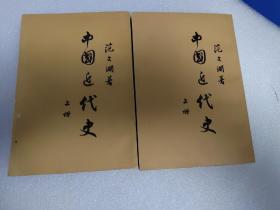 范文澜著
中国近代史
上册
范文澜著
中国近代史
上册